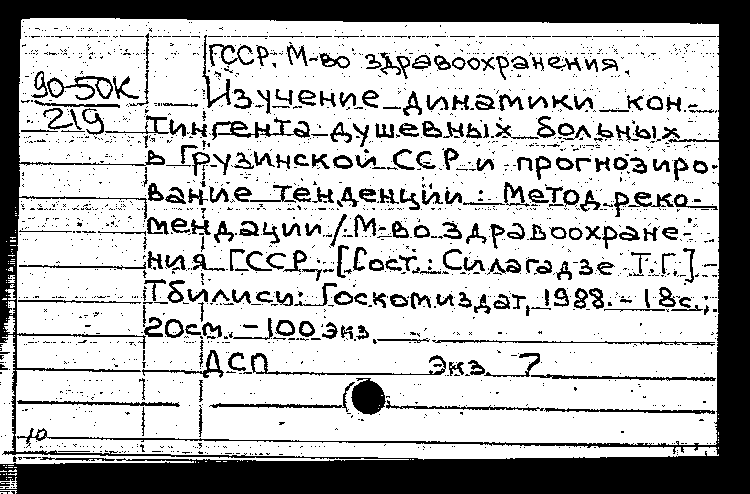 ГССР. М-во здравоохранения.
90-50К
219
Изучение динамики кон-
тингента душевных больных
в Грузинской ССР и прогнозиро-
вание тенденции: Метод. реко-
мендации / М-во здравоохране-
ния ГССР; [Сост.: Силагадзе Т.Г.]
Тбилиси: Госкомиздат, 1988. - 18с.;
20см. - 100 экз.
ДСП экз. 7
10